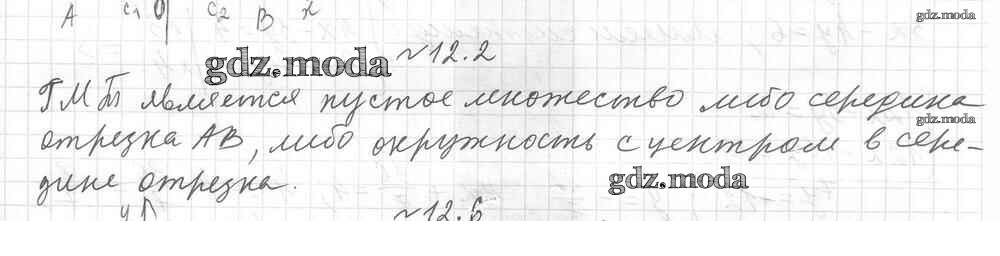 A c1 0 c2 B x
gdz.moda
gdz.moda №12.2
ГМТ является пустое множество либо середина
gdz.moda
отрезка AB, либо окружность с центром в сере-
дине отрезка.
gdz.moda
№12.6